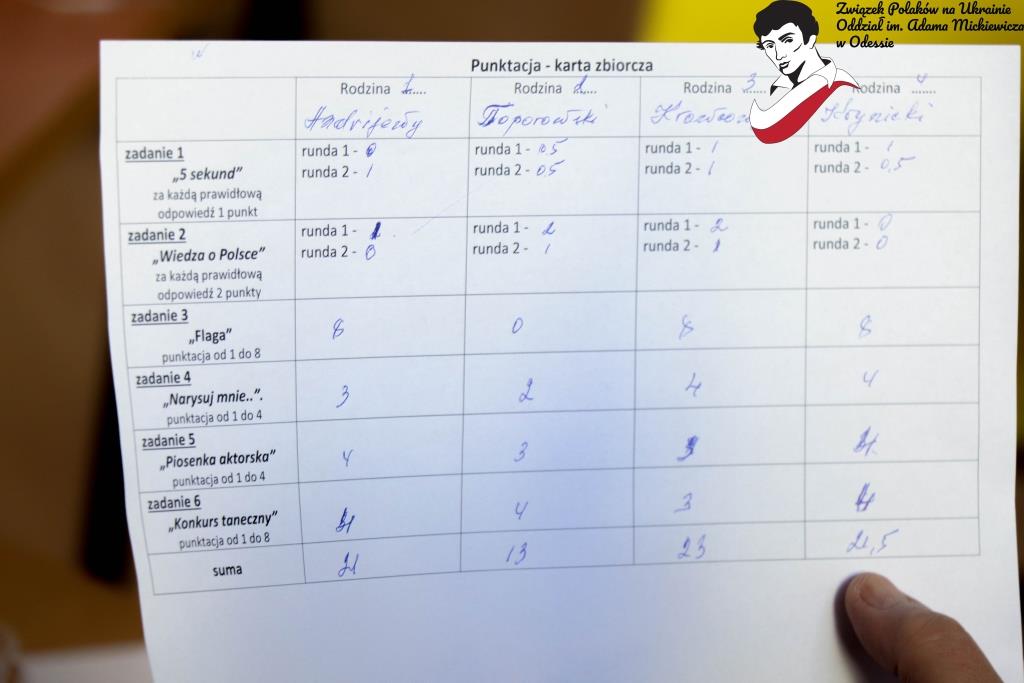 Związek Polaków na Ukrainie
Oddział im. Adama Mickiewicza
w Odessie
Punktacja - karta zbiorcza
Rodzina 1.... Rodzina 2.... Rodzina 3...... Rodzina 4......
Toporowski Krynicki
zadanie 1
„5 sekund”
za każdą prawidłową
odpowiedź 1 punkt
runda 1 - 0
runda 2 - 1
runda 1 - 0,5
runda 2 - 0,5
runda 1 - 1
runda 2 - 1
runda 1 - 1
runda 2 - 0,5
zadanie 2
„Wiedza o Polsce”
za każdą prawidłową
odpowiedź 2 punkty
runda 1 - 1
runda 2 - 0
runda 1 - 2
runda 2 - 1
runda 1 - 2
runda 2 - 1
runda 1 - 0
runda 2 - 0
zadanie 3
„Flaga”
punktacja od 1 do 8
8 0 8 8
zadanie 4
„Narysuj mnie..”.
punktacja od 1 do 4
3 2 4 4
zadanie 5
„Piosenka aktorska”
punktacja od 1 do 4
4 3 3 4
zadanie 6
„Konkurs taneczny”
punktacja od 1 do 8
4 4 3 4
suma
21 13 23 21,5